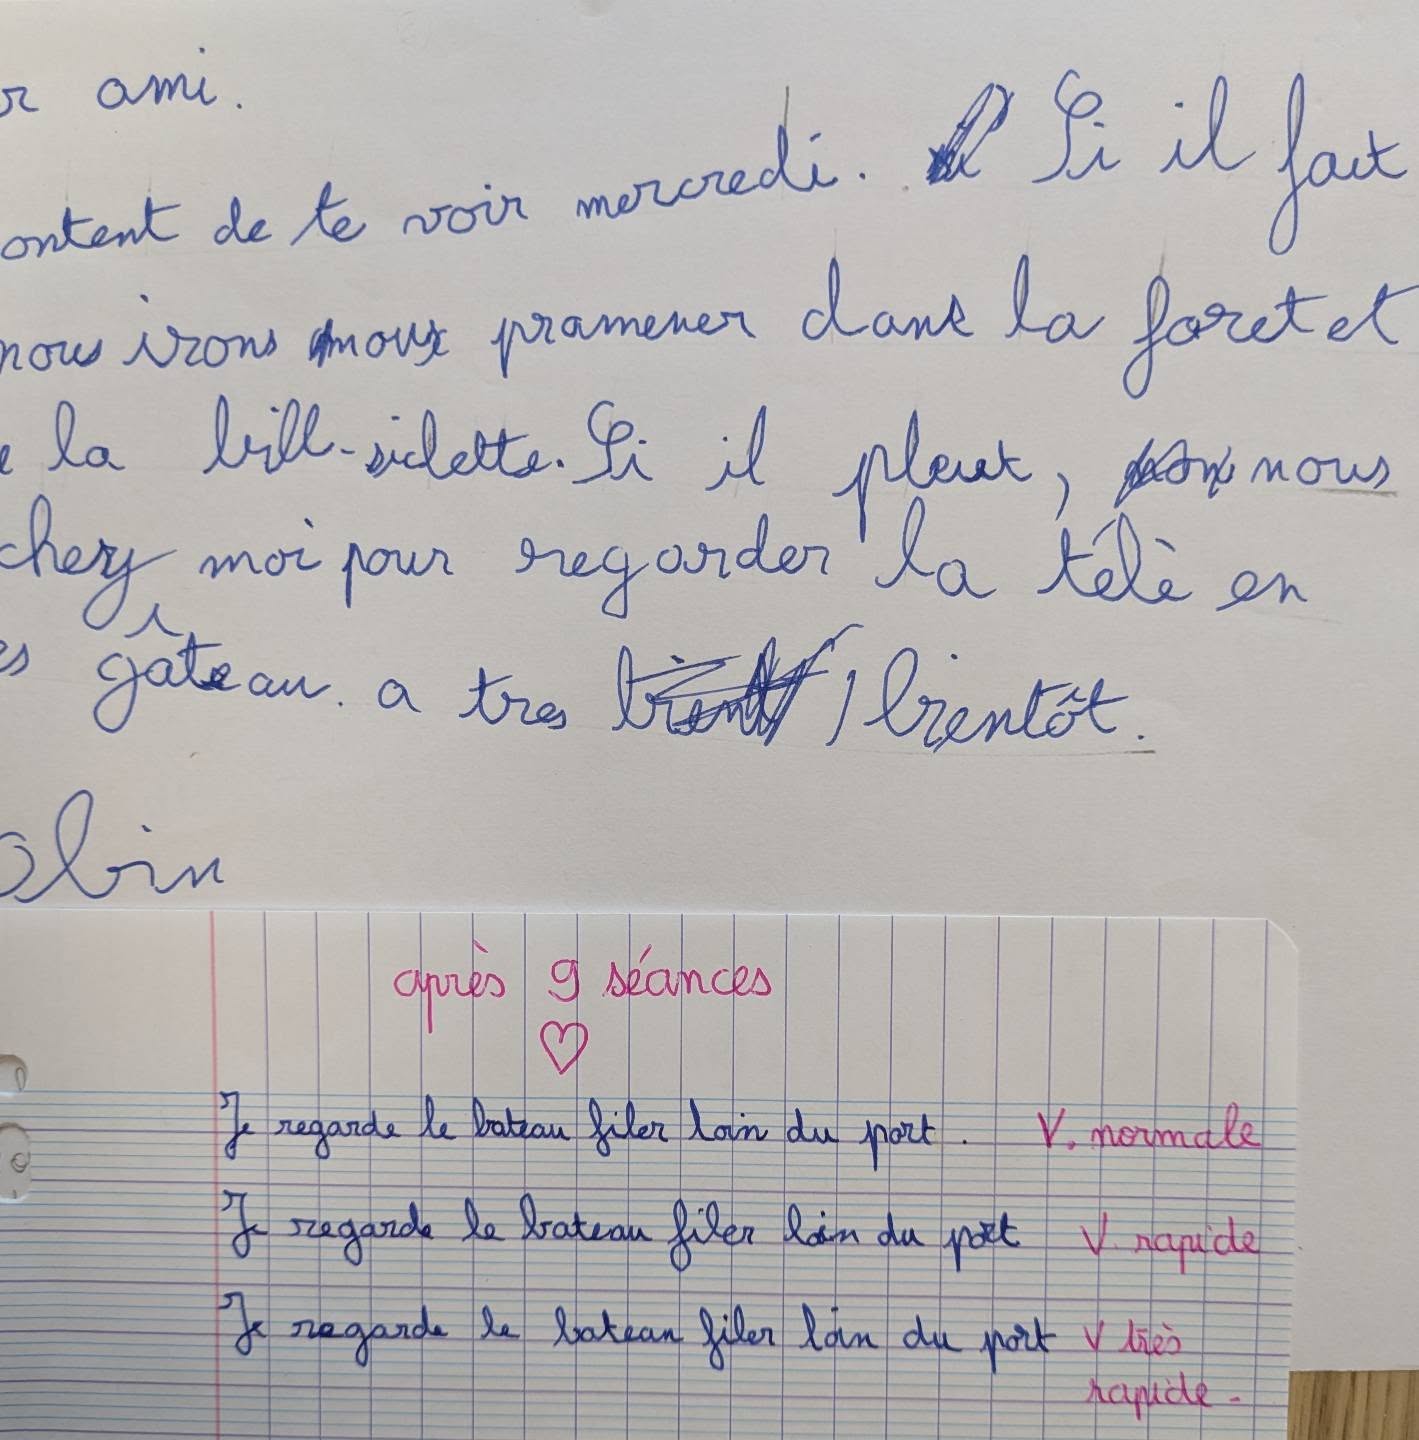 r ami.
ontent de te voir mercredi. Si il fait
nous irons nous pramener dans la foret et
la bill-siclette. Si il pleut, nous
chez moi pour regarder la télè en
es gâteau. a tres bientôt.
obin
après 9 séances
Je regarde le bateau filer loin du port. V. normale
Je regarde le bateau filer loin du port V. rapide
Je regarde le bateau filer loin du port V très
rapide.